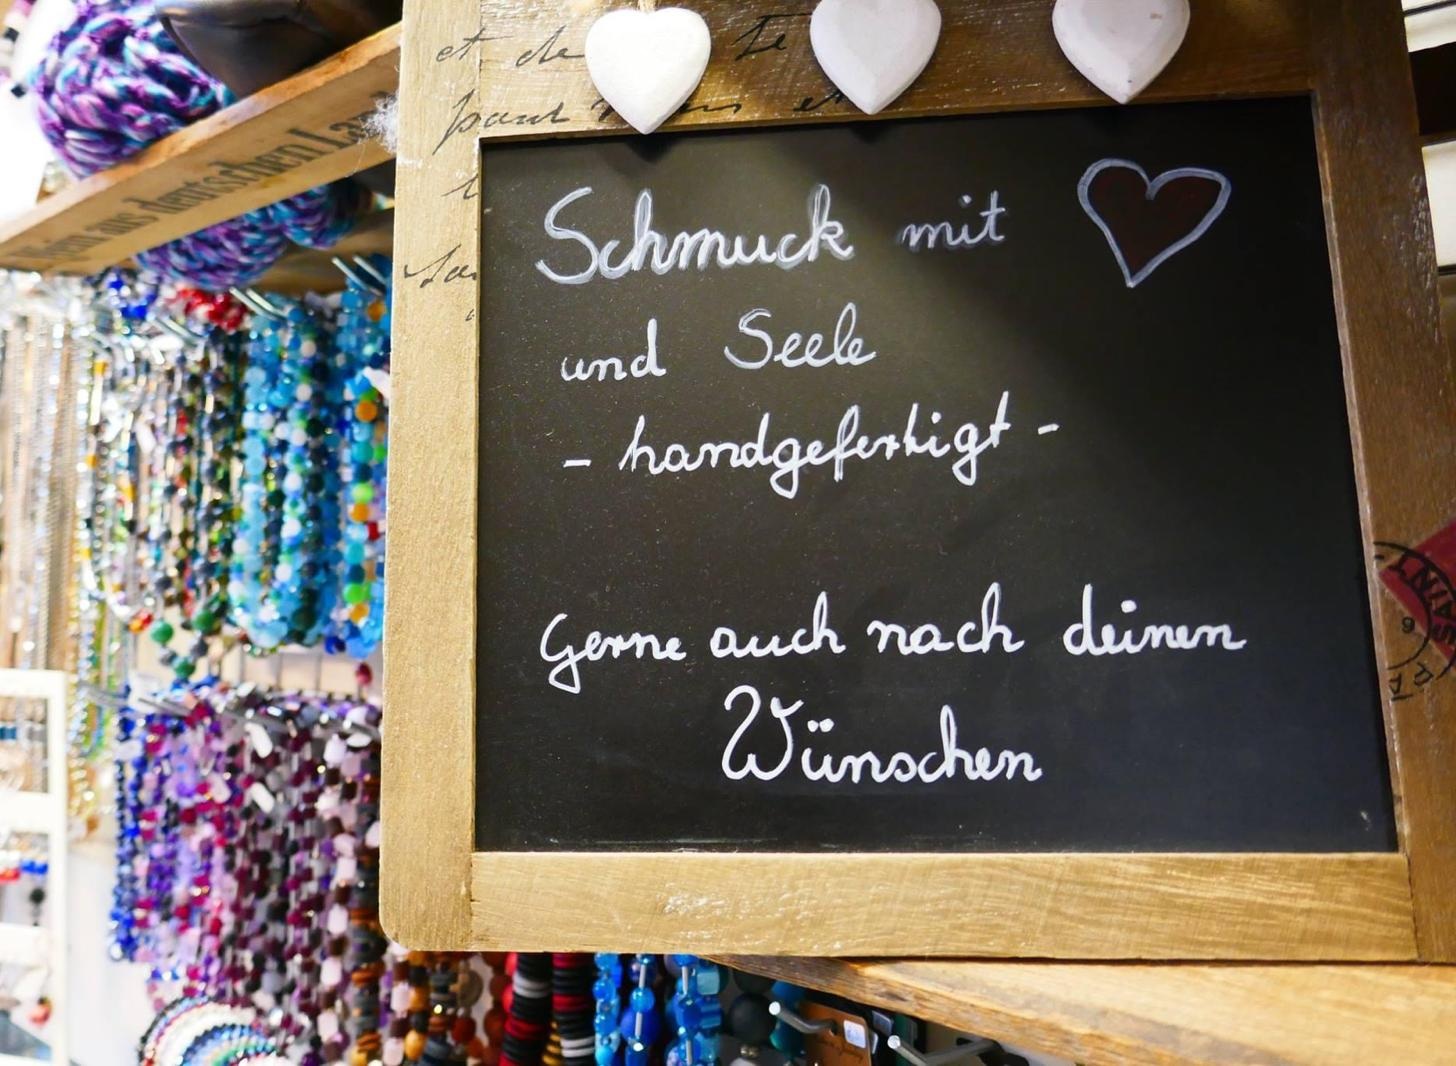 et de
pour
aus deutschen
Schmuck mit
und Seele
- handgefertigt -
Gerne auch nach deinen
Wünschen